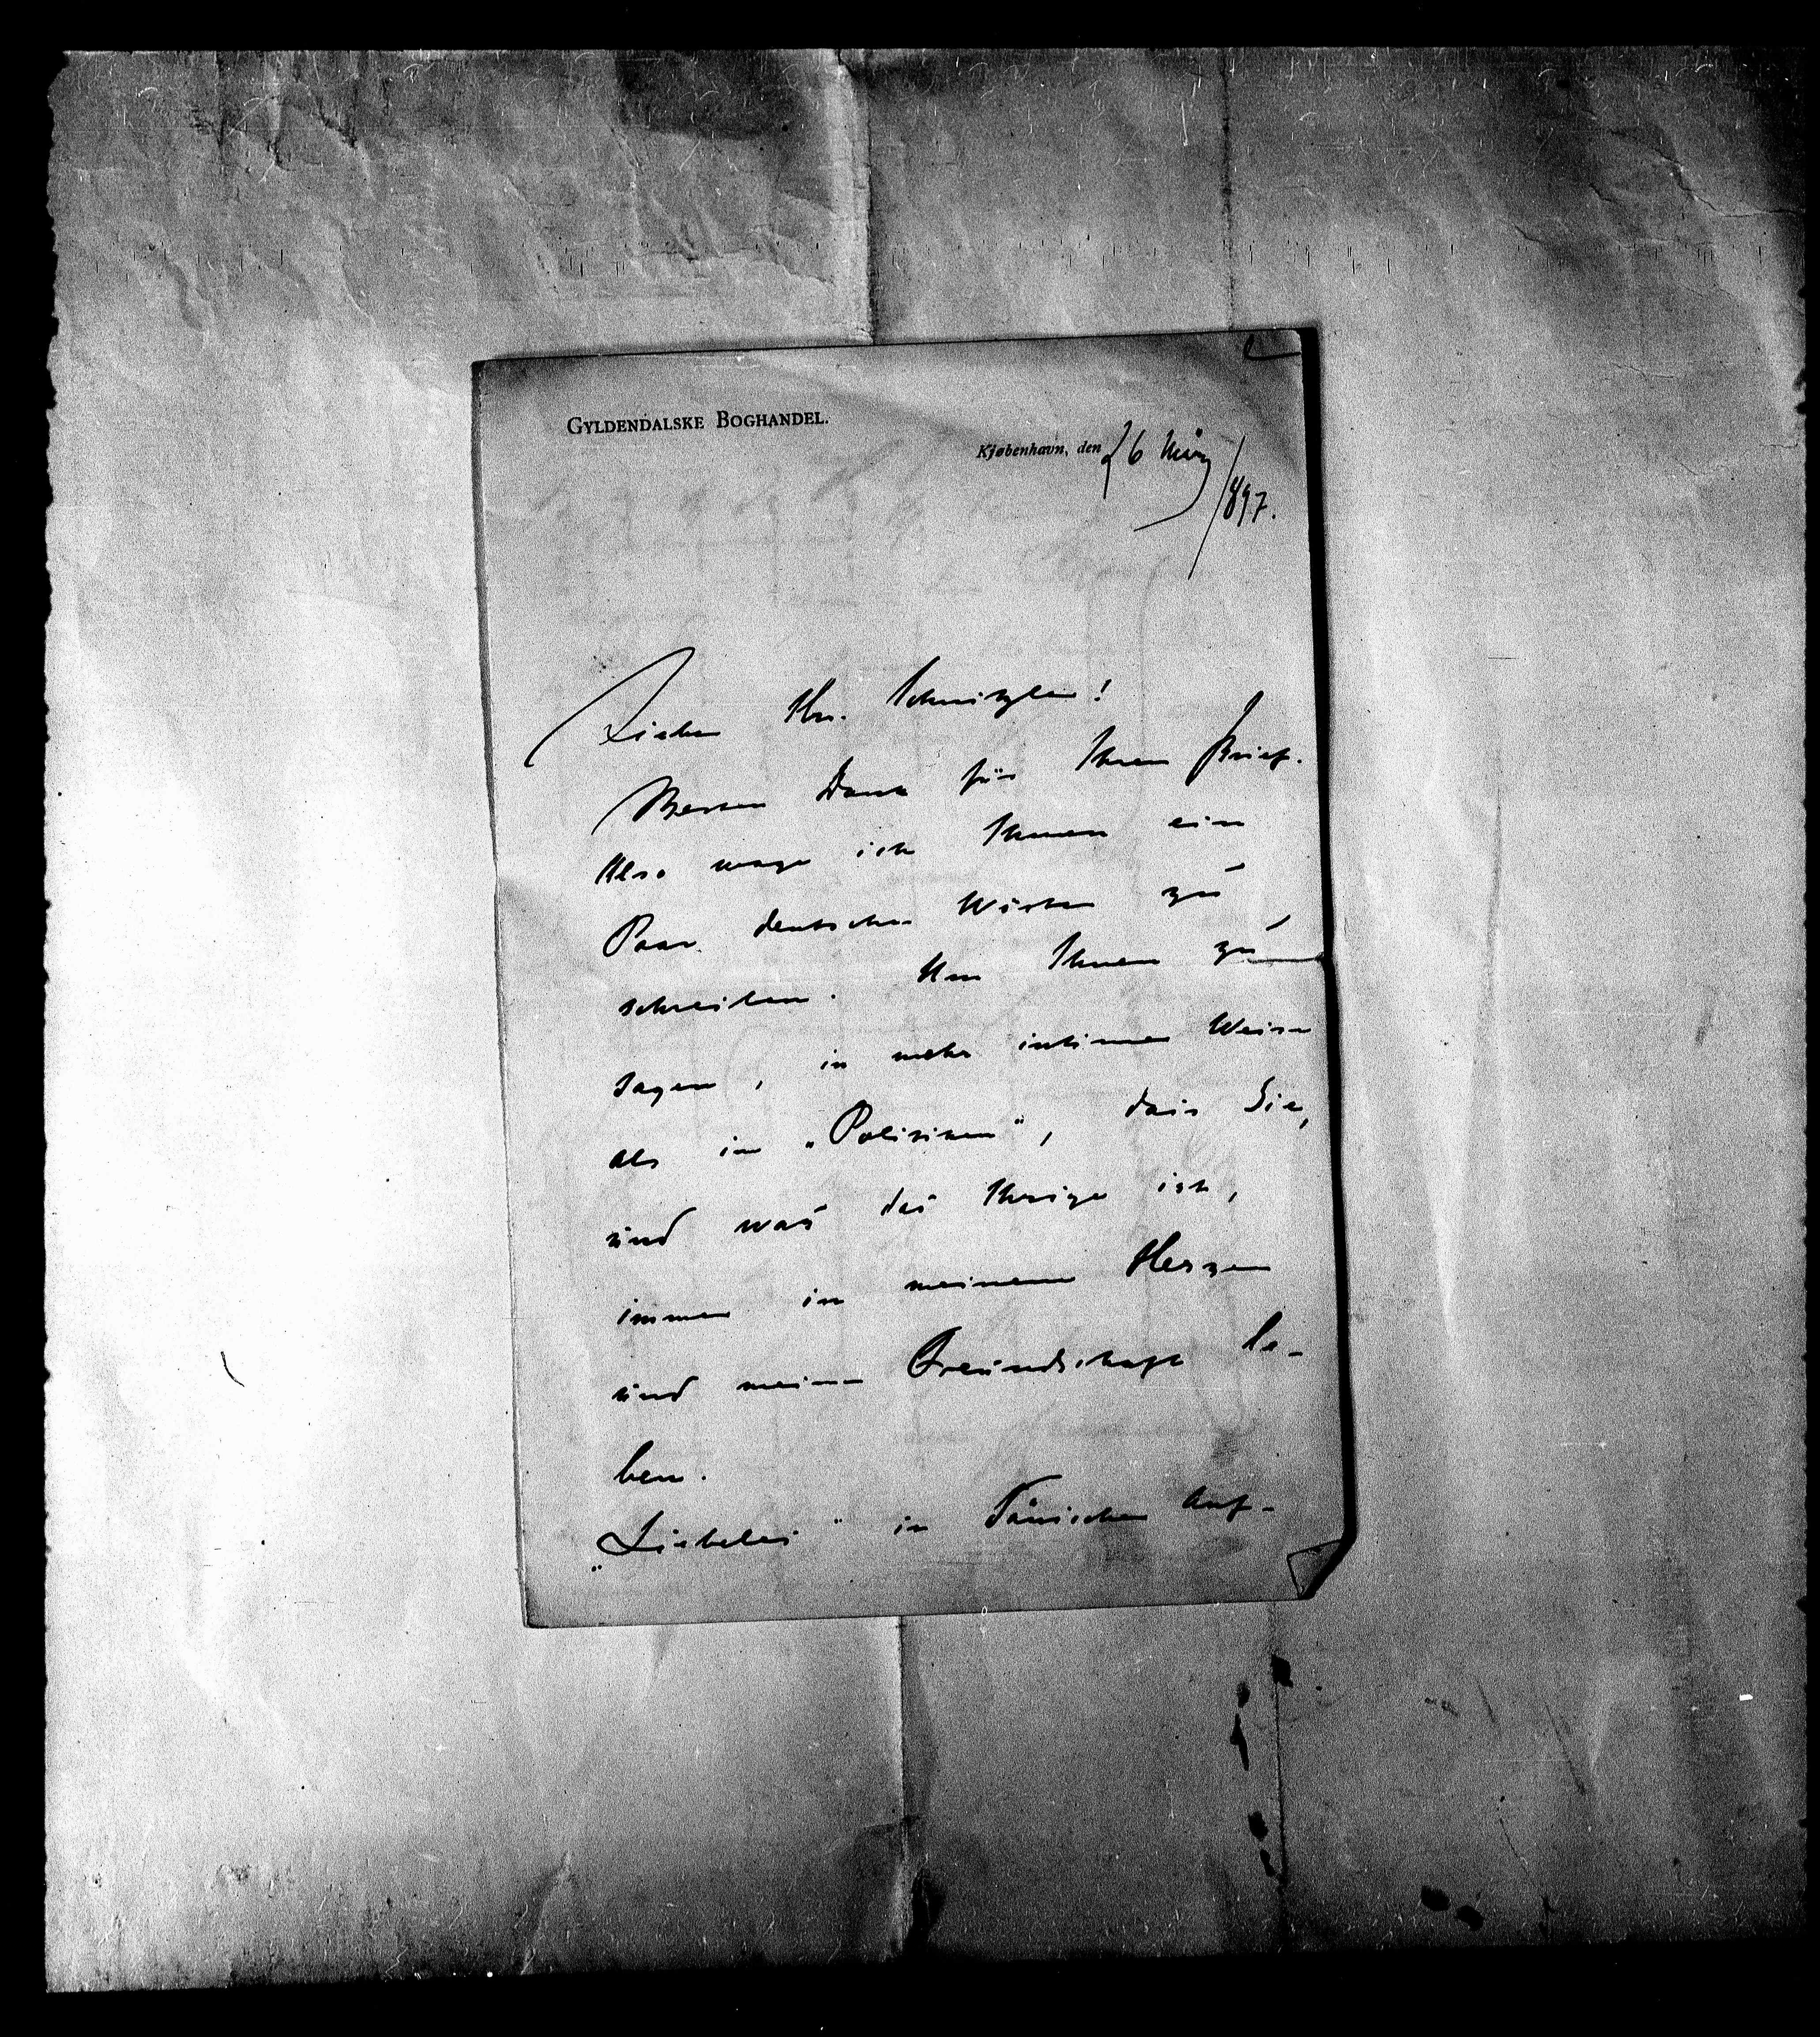 GYLDENDALSKE BOGHANDEL.
Kjøbenhavn, den 26 März
1897.
Lieber Hr. Schnitzler!
Besten Dank für Ihren Brief.
Also wage ich Ihnen ein
Paar deutsche Wörter zu
schreiben. Um Ihnen zu
sagen, in mehr intimer Weise
als in „Politiken“, dass Sie,
und was das Ihrige ist,
immer in meinem Herzen
und meine Freundschaft le-
ben.
„Liebelei“ in Dänischer Auf-